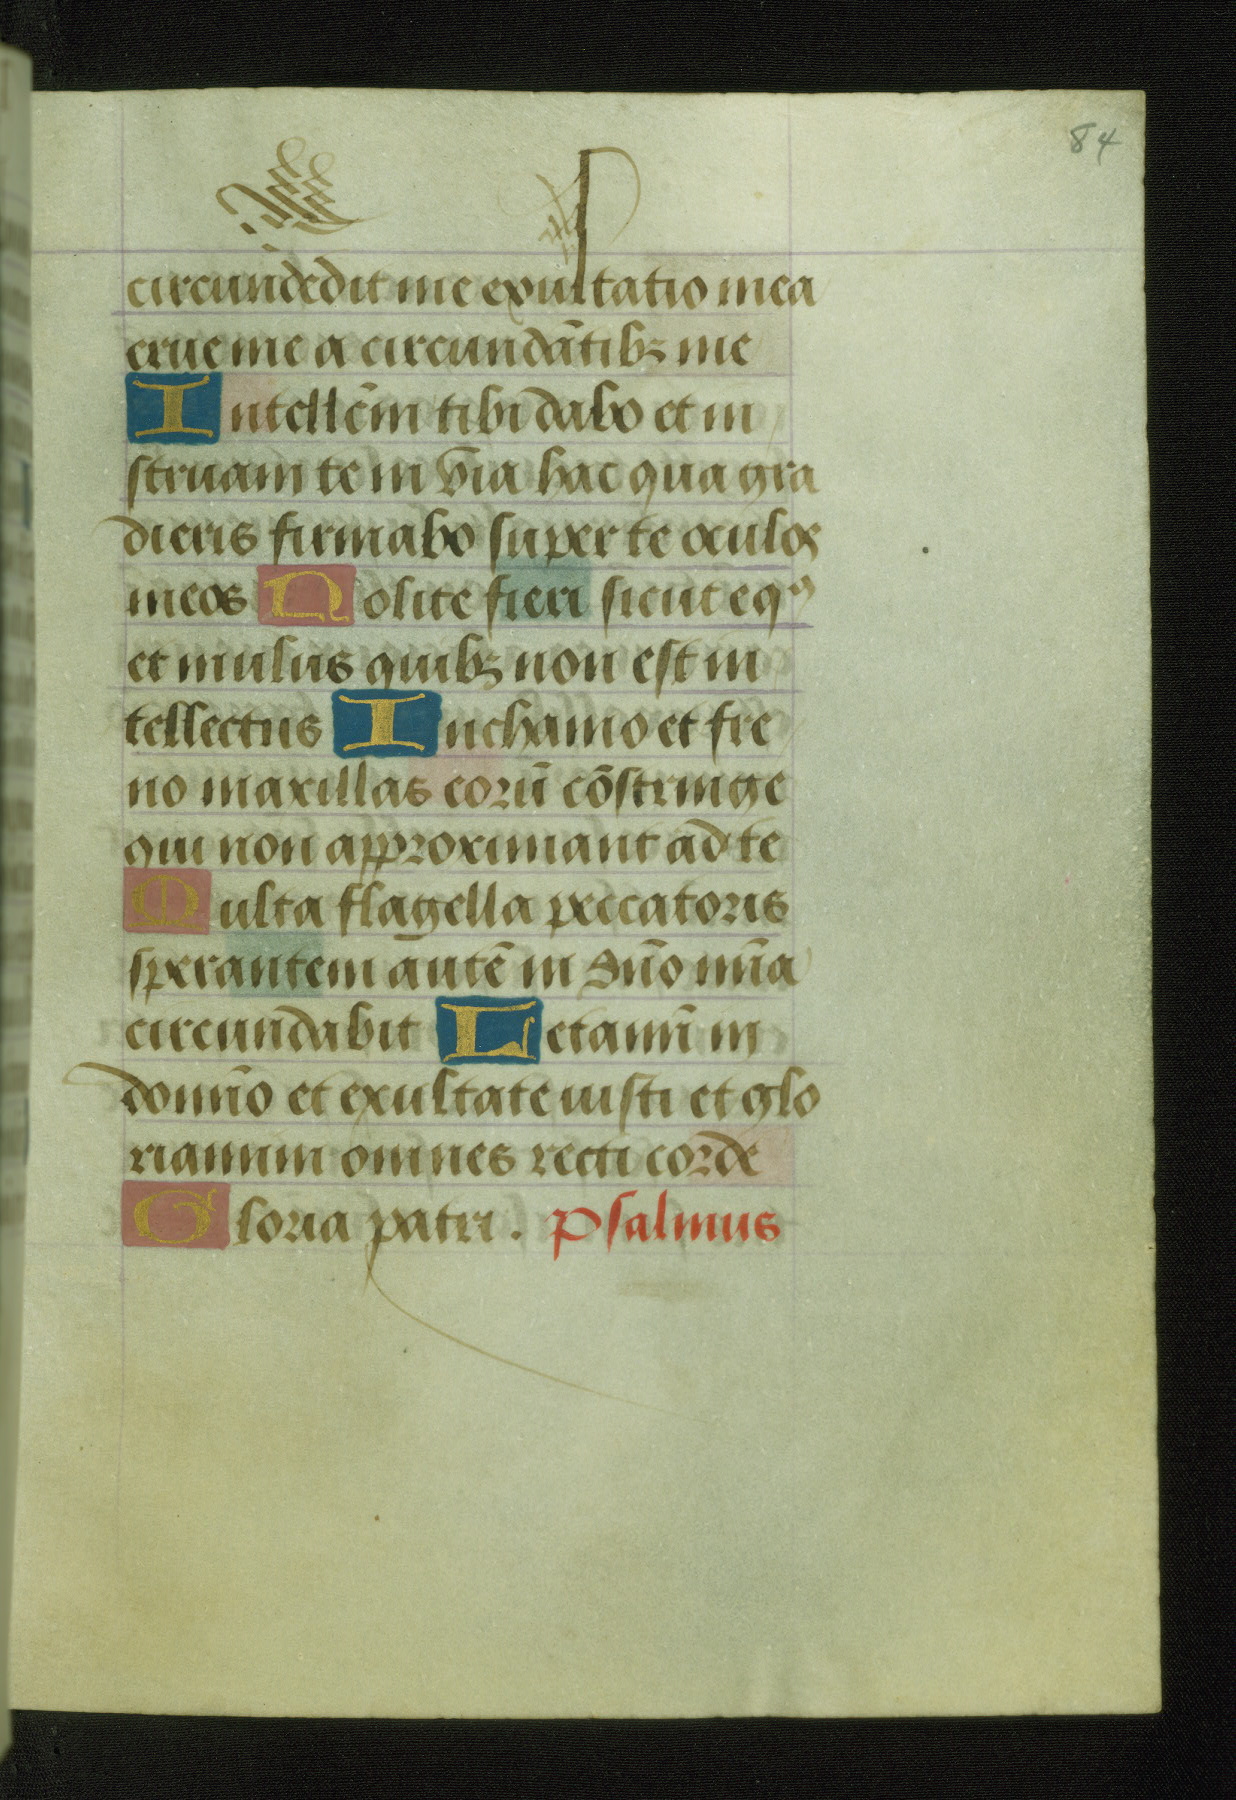 84
circundedit me exultatio mea
erue me a circundātibꝫ me
Intellc̄m tibi dabo et in
struam te in via hac qua gra
dieris firmabo super te oculos
meos Nolite fieri sicut eqꝰ
et mulus quibꝫ non est in
tellectus In chamo et fre
no maxillas eorū cōstringe
qui non approximant ad te
Multa flagella peccatoris
sperantem autē in dn̄o mīa
circundabit Letamī in
domīo et exultate iusti et glo
riamini omnes recti corde
Gloria patri. Psalmus